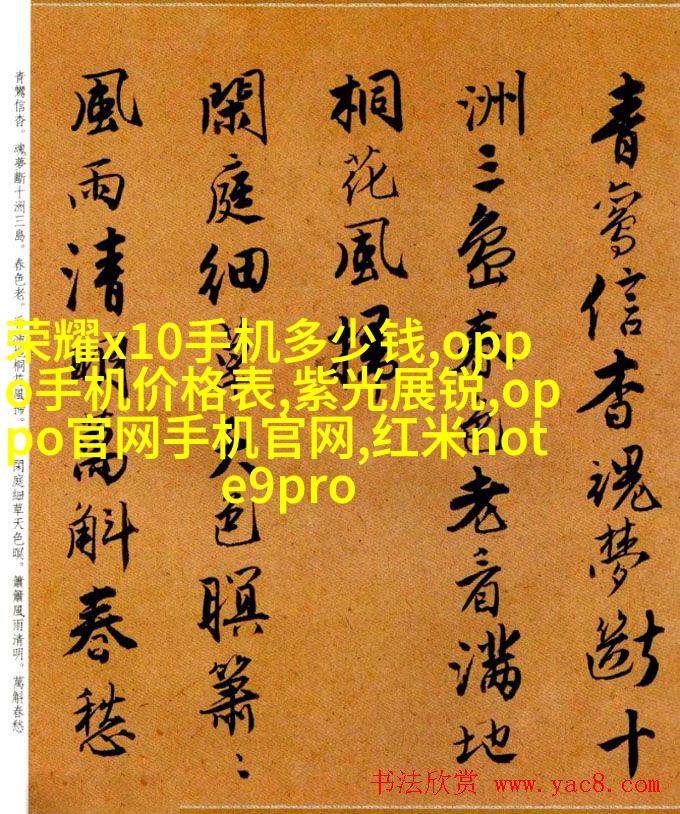 青鸞信杳魂夢斷十
洲三島春色老看滿地
桐花風掃
閑庭細草天色暝簫〻
風雨清明萬斛春愁
青鸞信杳。魂夢斷十洲三島。春色老。滿地桐花風掃。閑庭細草天色暝。簫簫風雨清明。萬斛春愁
荣耀x10手机多少钱,opp
o手机价格表,紫光展锐,op
po官网手机官网,红米not
e9pro
书法欣赏 www.yac8.com